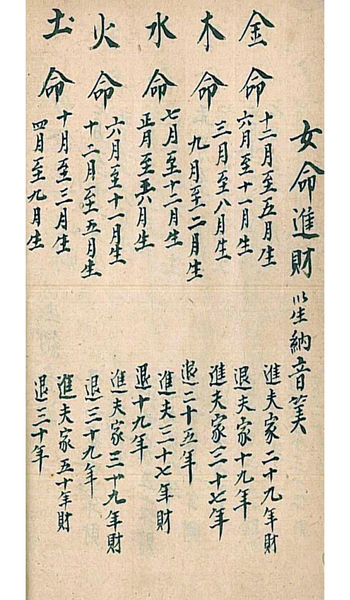 女命進財 以生納音筭
金命
十二月至五月生 進夫家二十九年財
六月至十一月生 退夫家十九年
木命
三月至八月生 進夫家三十七年
九月至二月生 退二十五年
水命
七月至十二月生 進夫家三十七年財
正月至六月生 退十九年
火命
六月至十一月生 進夫家三十九年財
十二月至五月生 退三十九年
土命
十月至三月生 進夫家五十年財
四月至九月生 退三十年